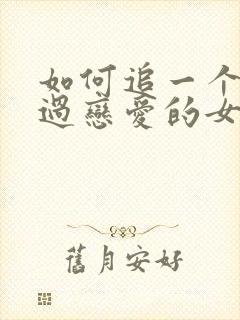 如何追一个
過戀愛的女
舊月安好